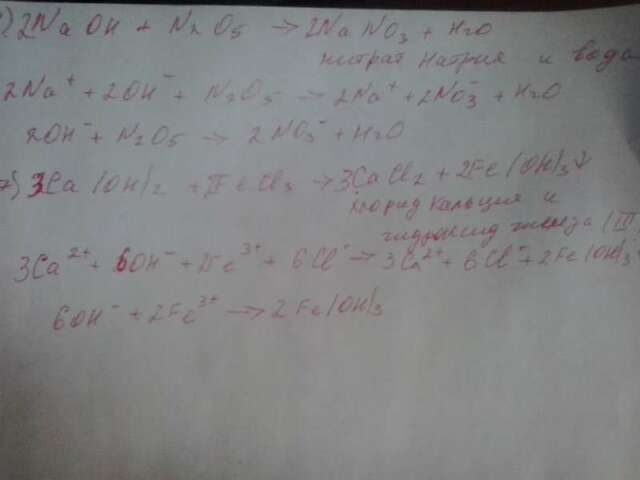 ) 2NaOH + N2O5 → 2NaNO3 + H2O
нитрат натрия и вода
2Na⁺ + 2OH⁻ + N2O5 → 2Na⁺ + 2NO3⁻ + H2O
2OH⁻ + N2O5 → 2NO3⁻ + H2O
) 3Ca(OH)2 + 2FeCl3 → 3CaCl2 + 2Fe(OH)3↓
хлорид кальция и
гидроксид железа (III)
3Ca²⁺ + 6OH⁻ + 2Fe³⁺ + 6Cl⁻ → 3Ca²⁺ + 6Cl⁻ + 2Fe(OH)3↓
6OH⁻ + 2Fe³⁺ → 2Fe(OH)3